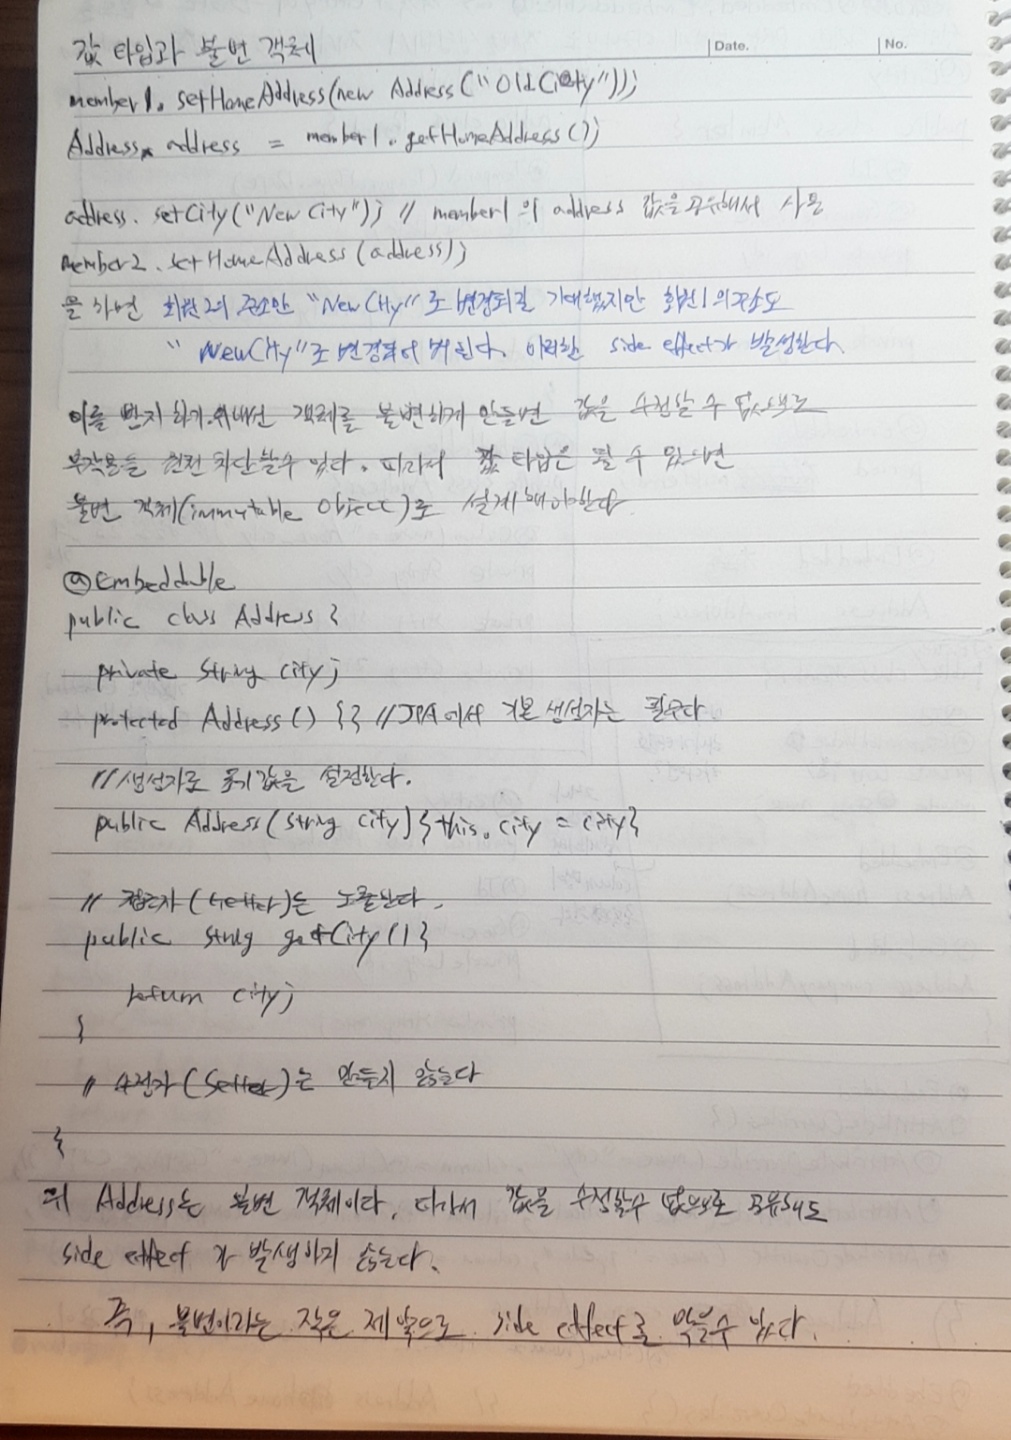 값 타입과 불변 객체
Date.
No.
member1. setHomeAddress(new Address("OldCity"));
Address address = member1.getHomeAddress();
address. setCity("New City"); // member1 의 address 값을 공유해서 사용
member2. setHomeAddress (address);
를 하면 회원2의 주소만 "New City"로 변경되길 기대했지만 회원1의 주소도
"NewCity"로 변경되어 버린다. 이러한 side effect가 발생한다.
이를 방지 하기 위해선 객체를 불변하게 만들면 값을 수정할 수 없으므로
부작용을 원천 차단할수 있다. 따라서 값 타입은 될 수 있으면
불변 객체(immutable Object)로 설계해야한다
@Embeddable
public class Address {
private String city;
protected Address() {} //JPA에서 기본 생성자는 필수다
//생성자로 초기값을 설정한다.
public Address(String city) {this.city = city}
// 접근자(Getter)는 노출한다.
public String getCity() {
return city;
}
// 수정자(Setter)는 만들지 않는다
}
위 Address는 불변 객체이다. 따라서 값을 수정할수 없으므로 공유해도
side effect 가 발생하지 않는다.
즉, 불변이라는 작은 제약으로 side effect를 막을수 있다.